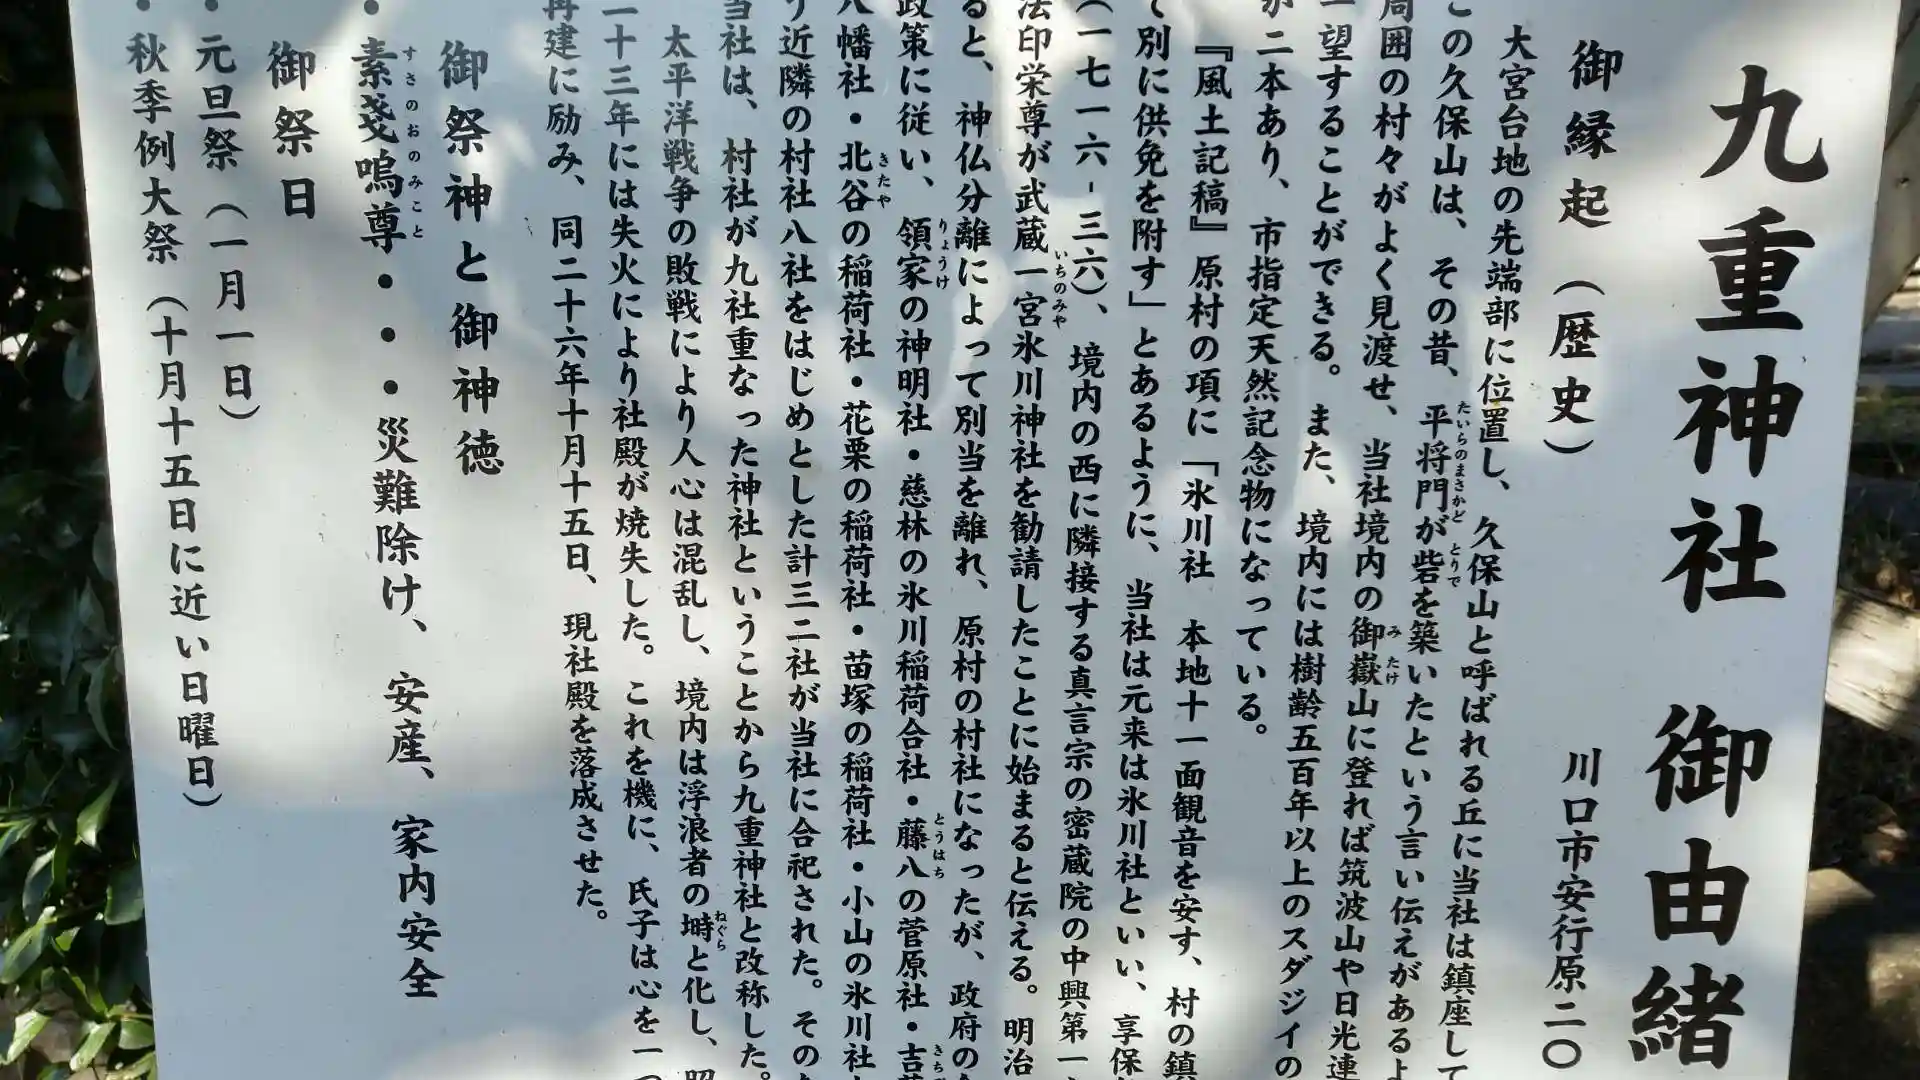 九重神社 御由緒
川口市安行原二〇
御縁起（歴史）
大宮台地の先端部に位置し、久保山と呼ばれる丘に当社は鎮座して
この久保山は、その昔、平将門が砦を築いたという言い伝えがあるよ
たいらのまさかど とりで
周囲の村々がよく見渡せ、当社境内の御嶽山に登れば筑波山や日光連
みたけ
一望することができる。また、境内には樹齢五百年以上のスダジイの
が二本あり、市指定天然記念物になっている。
『風土記稿』原村の項に「氷川社 本地十一面観音を安す、村の鎮
て別に供免を附す」とあるように、当社は元来は氷川社といい、享保
（一七一六-三六）、境内の西に隣接する真言宗の密蔵院の中興第一
法印栄尊が武蔵一宮氷川神社を勧請したことに始まると伝える。明治
いちのみや
ると、神仏分離によって別当を離れ、原村の村社になったが、政府の
政策に従い、領家の神明社・慈林の氷川稲荷合社・藤八の菅原社・吉
りょうけ とうはち
八幡社・北谷の稲荷社・花栗の稲荷社・苗塚の稲荷社・小山の氷川社
きたや
り近隣の村社八社をはじめとした計三二社が当社に合祀された。その
当社は、村社が九社重なった神社ということから九重神社と改称した。
太平洋戦争の敗戦により人心は混乱し、境内は浮浪者の塒と化し、昭
ねぐら
二十三年には失火により社殿が焼失した。これを機に、氏子は心を一
再建に励み、同二十六年十月十五日、現社殿を落成させた。
御祭神と御神徳
・素戔嗚尊・・・災難除け、安産、家内安全
すさのおのみこと
御祭日
・元旦祭（一月一日）
・秋季例大祭（十月十五日に近い日曜日）